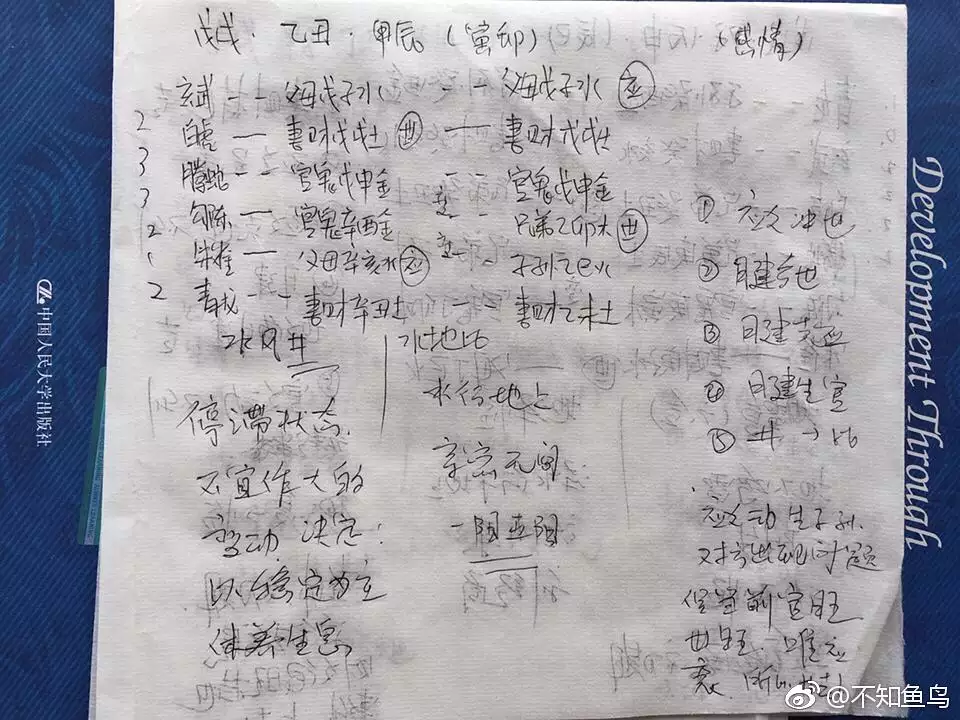 戊戌·乙丑·甲辰(寅卯) (感情)
玄武 - - 父母戊子水 - - 父母戊子水 应
2 白虎 — 妻财戊戌土 世 — 妻财戊戌土
3 腾蛇 - - 官鬼戊申金 - - 官鬼戊申金
3 勾陈 — 官鬼辛酉金 变 - - 兄弟乙卯木 世
2 朱雀 — 父母辛亥水 应 变 - - 子孙乙巳火
2 青龙 - - 妻财辛丑土 妻财乙未土
① 应爻冲世
② 日建合世
③ 月建克应
④ 月建生官
⑤ 井→比
水风井
水地比
停滞状态.
不宜作大的
变动 决定:
以稳定为主
休养生息
水行地上
亲密无间
一阳五阴
应爻动生子孙.
对方出现问题
官旺
世旺. 唯应
衰.
Development Through
中国人民大学出版社
@不知鱼鸟